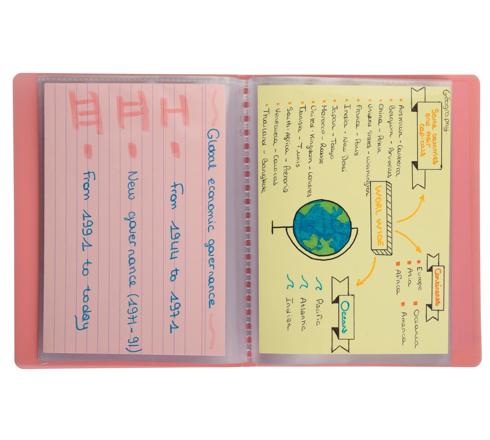 Global economic governance
I. from 1944 to 1971
II. New governance (1971-91)
III. From 1991 to today
Geography
Some countries
and their
capitals
Belgium - Bruxelles
China - Pekin
United States - Washington
France - Paris
India - New
Japan - Tokyo
Morocco - Rabat
United-Kingdom - Londres
Tunisia - Tunis
South Africa - Pretoria
Venezuela - Caracas
Thailand - Bangkok
WORLD WIDE
Continents
Europe
Asia
Africa
Oceania
America
Oceans
Pacific
Atlantic
Indian